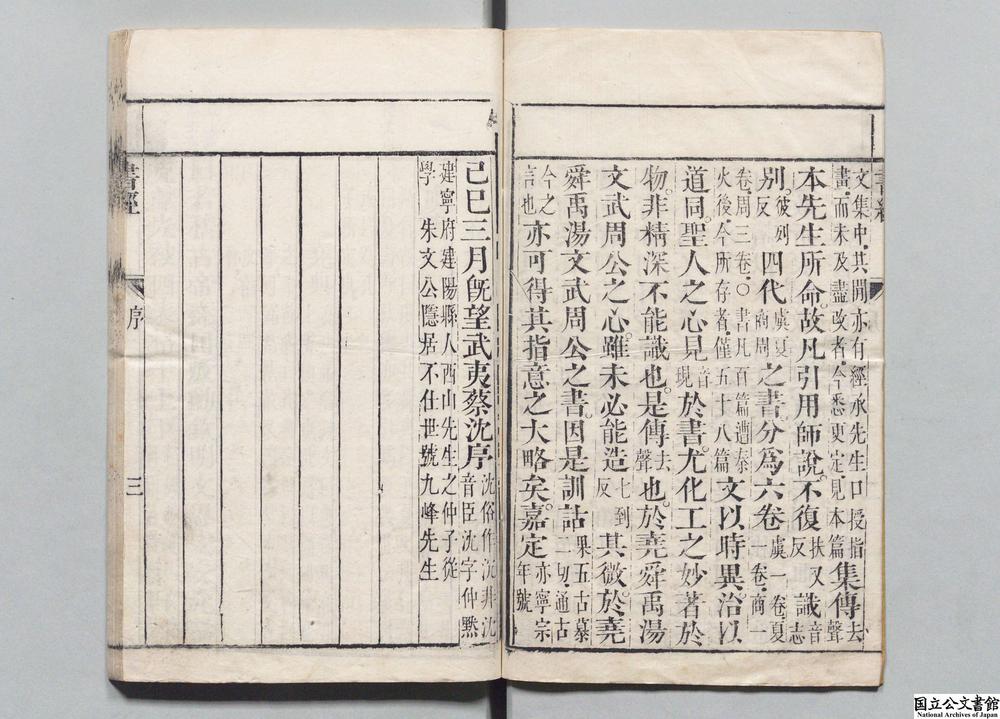 文集中其間亦有經承先生口授指
畫而未及盡改者今悉更定見本篇集傳去聲
本先生所命故凡引用師說不復扶又反識音志
別彼列反四代虞夏商周之書分為六卷虞一卷夏一卷商一
卷周三卷○書凡百篇遭秦火後今所存者僅五十八篇文以時異治以
道同聖人之心見音現於書尤化工之妙著於
物非精深不能識也是傳去聲也於堯舜禹湯
文武周公之心雖未必能造七到反其微於堯
舜禹湯文武周公之書因是訓詁果五古慕二切通古
今之言也亦可得其指意之大略矣嘉定亦寧宗年號
己巳三月旣望武夷蔡沈序沈俗作沉非沈音臣沈字仲黙
建寧府建陽縣人西山先生之仲子從
學朱文公隱居不仕世號九峰先生
書經
序
三
国立公文書館
National Archives of Japan